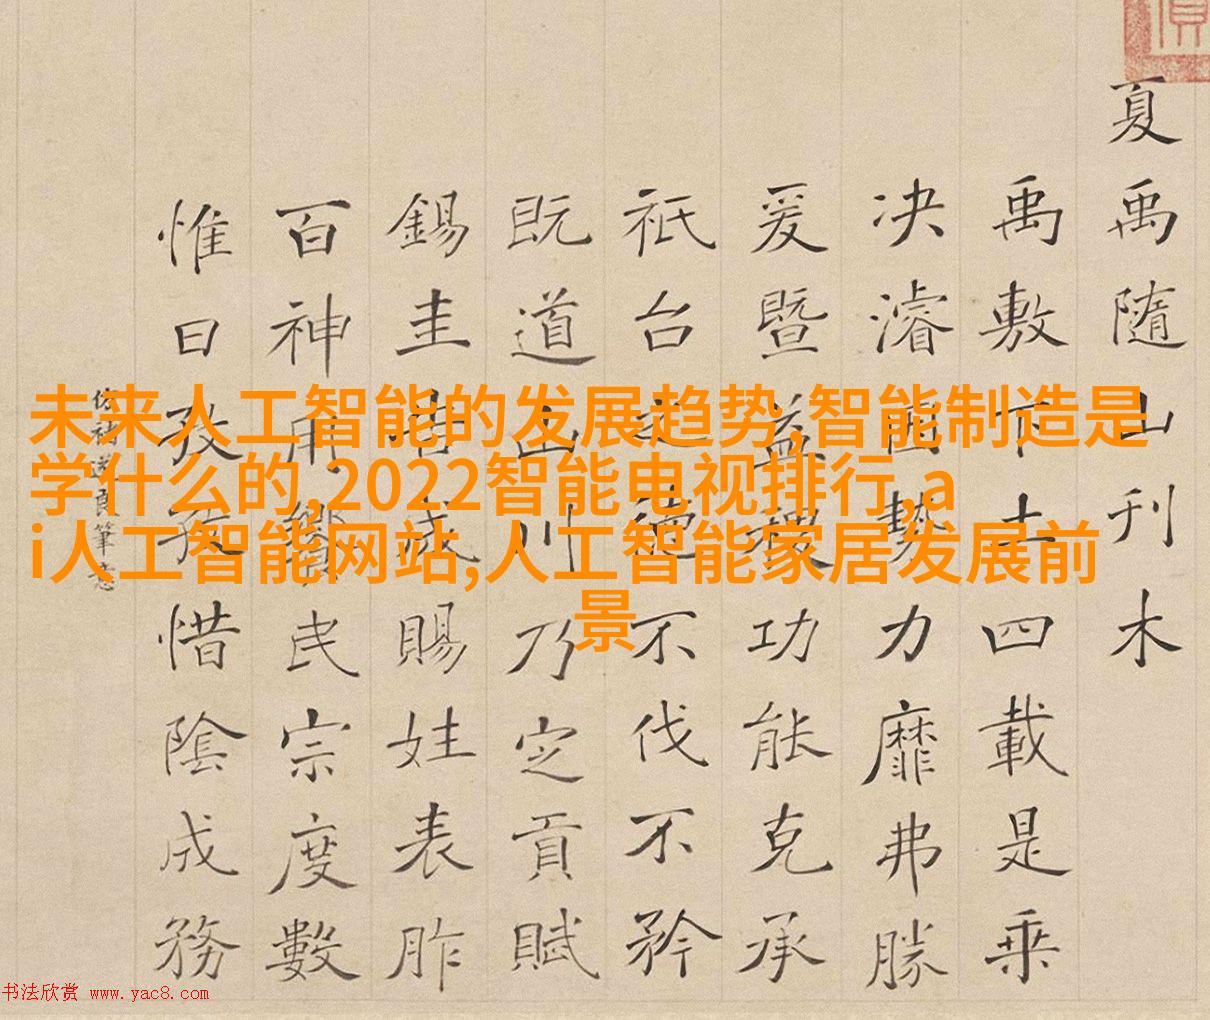 未来人工智能的发展趋势,智能制造是
学什么的,2022智能电视排行,a
i人工智能网站,人工智能家居发展前
景
夏禹隨山刊木
禹敷下土四載是乘
决濬勢力靡弗勝
爰暨益稷功能克承
祇台德不伐不矜
既道山川乃定貢賦
錫圭告成賜姓表胙
百神用饗民宗度數
惟日孜孜惜陰成務
仿褚遂良筆意
书法欣赏 www.yac8.com